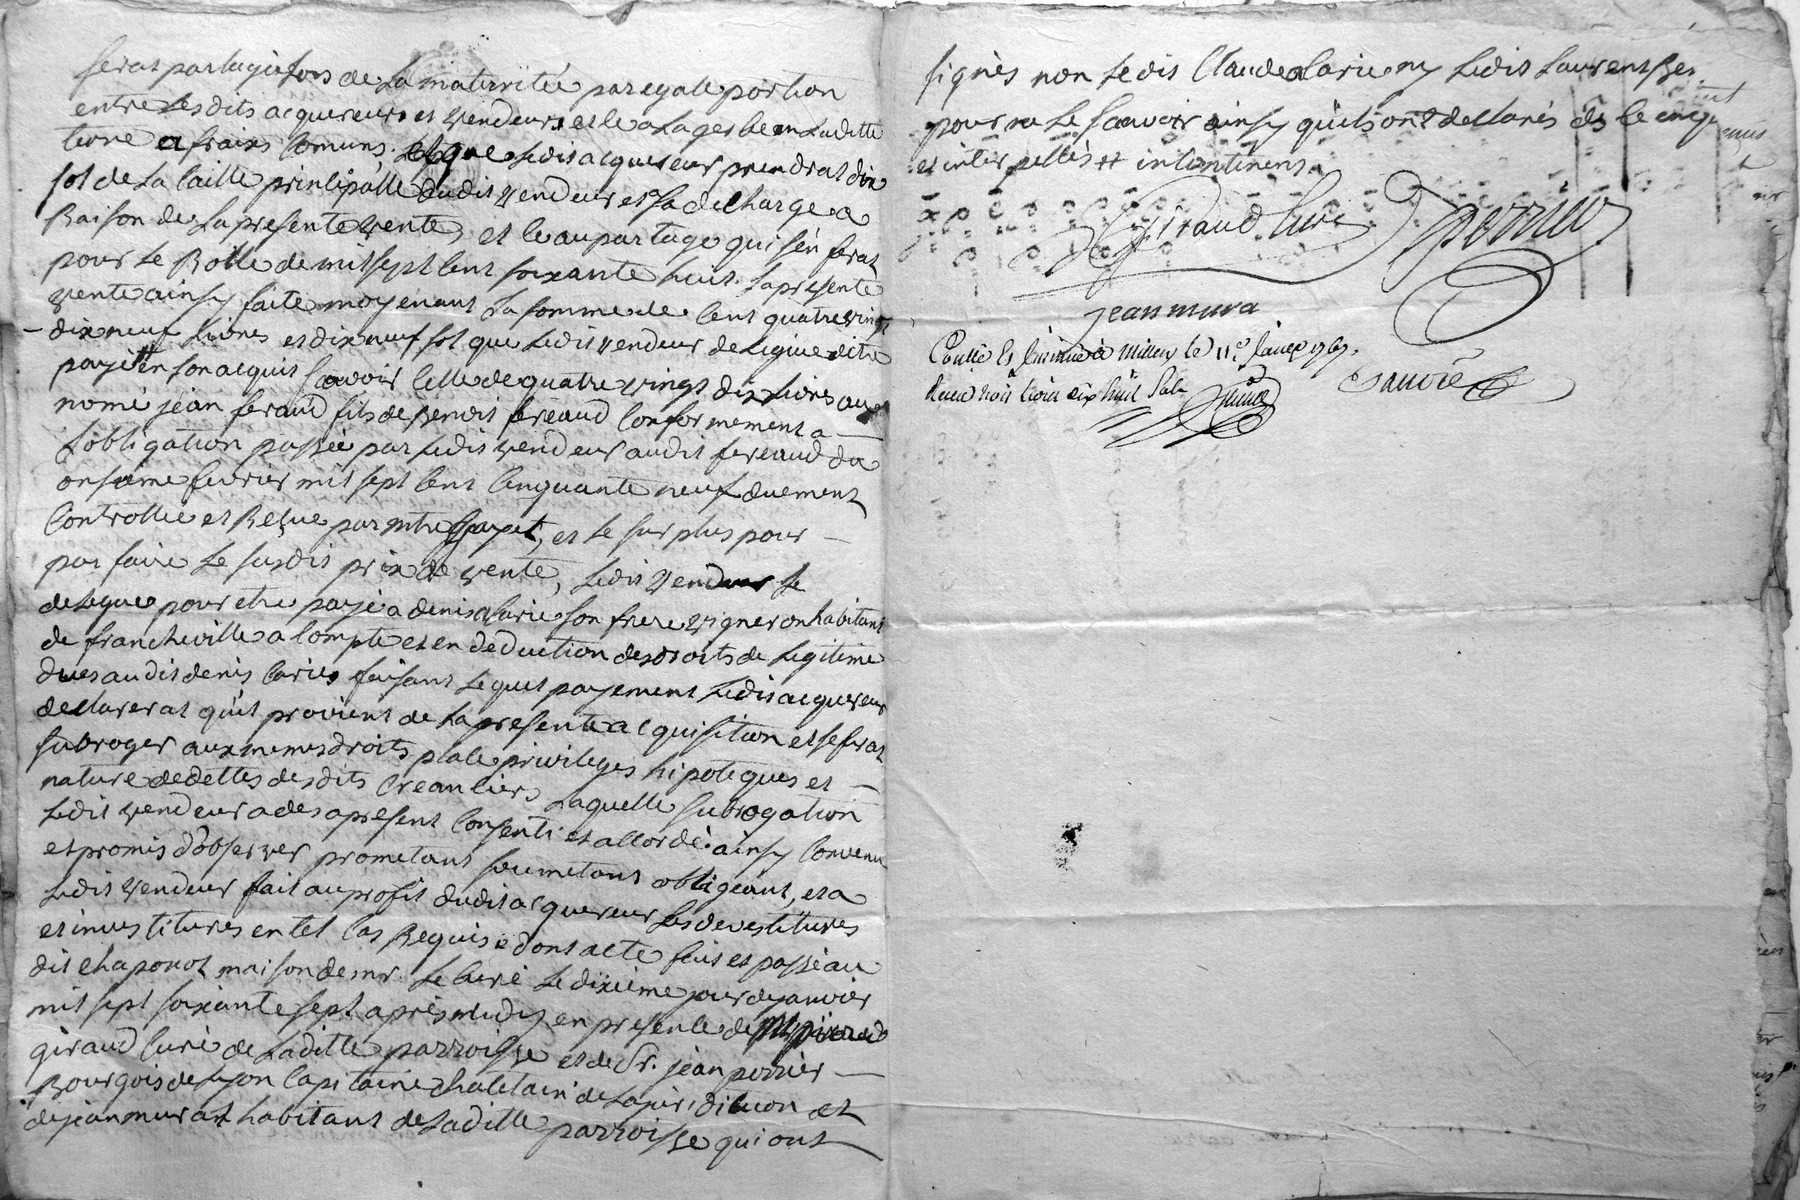 serat partagée lors de la maturitée par egalle portion
entre lesdits acquereur et vendeur et le a la gerbe en laditte
terre a fraixs comuns; et que ledit acquereur prendrat dix
sol de la taille principalle dudit vendeur et sa decharge a
Raison de la presente vente, et le au partage qui s'en ferat
pour le Rolle de mil sept cent soixante huit. la presente
vente ainsy faite moyenant la somme de cent quatre vingt
dix neuf livres et dix neuf sol que ledit vendeur delegue a être
payé en son acquit scavoir celle de quatre vingt dix livres au
nomé jean feraud fils de benoit fereaud conformement a
l'obligation passée par ledit vendeur audit fereaud du
onsieme fevrier mil sept cent cinquante neuf duement
Controllée et Reçue par mtre payet, et le surplus pour
parfaire le susdit prix de vente, ledit vendeur le
delegue pour etre payé a denis clarie son frere vigneron habitant
de francheville a compte et en deduction des droits de legitime
dues audit denis clarie faisant lequel payement ledit acquereur
declarerat qu'il provient de la presente acquisition et se ferat
subroger aux memes droits place privileges hipoteques et
nature de dettes desdits creanciers laquelle subrogation
ledit vendeur a des a present consenti et accordé. ainsy convenu
et promis d'observer prometant soumetant obligeant, et a
ledit vendeur fait au profit dudit acquereur les devestitures
et investitures en tel cas Requis dont acte fait et passé au
dit chaponot maison de mr. le curé le dixième jour de janvier
mil sept soixante sept après midy en presence de
giraud curé de laditte parroisse et de Sr. jean perrier
Bourgois de lyon capitaine chatelain de la juridiction et
de jean murat habitant de laditte parroisse qui ont
signés non ledit Claude clarie ny ledit Laurent
pour ne le scavoir ainsy qu'ils ont declarés de ce
et interpellés incontinent.
Giraud Curé perrier
jean mura
Controllé et insinué à Millery le 11e Janvier 1767.
Reçu trois dix huit sols